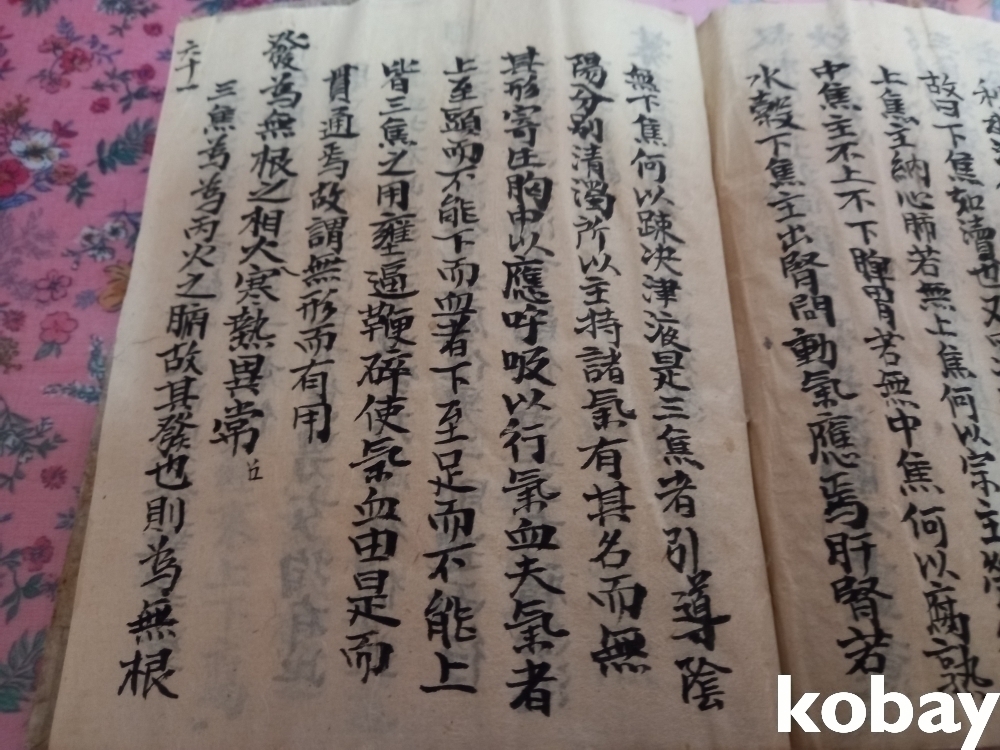 故曰下焦如瀆也又
上焦主納心肺若無上焦何以宗主
中焦主不上不下脾胃若無中焦何以腐熟
水穀下焦主出腎間動氣應焉肝腎若
無下焦何以踈决津液是三焦者引導陰
陽分別清濁所以主持諸氣有其名而無
其形寄在胸中以應呼吸以行氣血夫氣者
上至頭而不能下而血者下至足而不能上
皆三焦之用壅逼鞭碎使氣血由是而
貫通焉故謂無形而有用
發為無根之相火寒熱異常
六十一
三焦為為丙火之腑故其發也則為無根
kobay